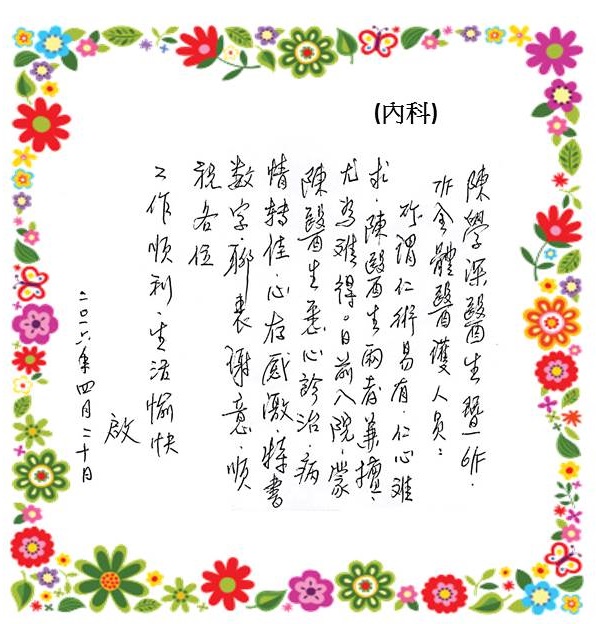 (內科)
陳學深醫生暨16F.
7F全體醫護人員：
所謂仁術易有.仁心難
求.陳醫生兩者兼擅.
尤為難得。日前入院.蒙
陳醫生悉心診治.病
情轉佳.心存感激.特書
数字.聊表謝意.順
祝各位
工作順利.生活愉快
啟
二〇一六年四月二十日